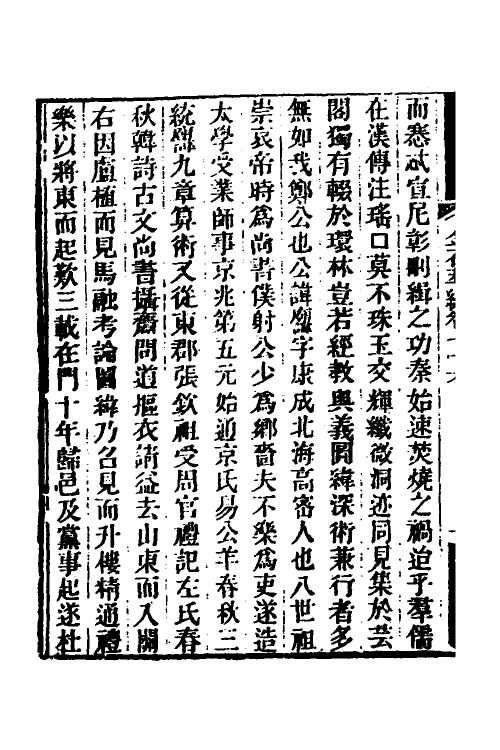 而悉甙宣尼彰刪緝之功秦始速焚燒之禍迨乎羣儒
在漢傳注瑤口莫不珠玉交輝纖微洞迹同見集於芸
閣獨有輟於環林豈若經教奥義圖緯深術兼行者多
無如我鄭公也公諱字康成北海高密人也八世祖
崇哀帝時為尚書僕射公少為鄉嗇夫不樂為吏遂造
太學受業師事京兆第五元始通京氏易公羊春秋三
統歷九章算術又從東郡張欽祖受周官禮記左氏春
秋韓詩古文尚書攝齋問道摳衣請益去山東而入關
右因盧植而見馬融考論圖緯乃召見而升樓精通禮
樂以將東而起歎三載在門十年歸邑及黨事起遂杜